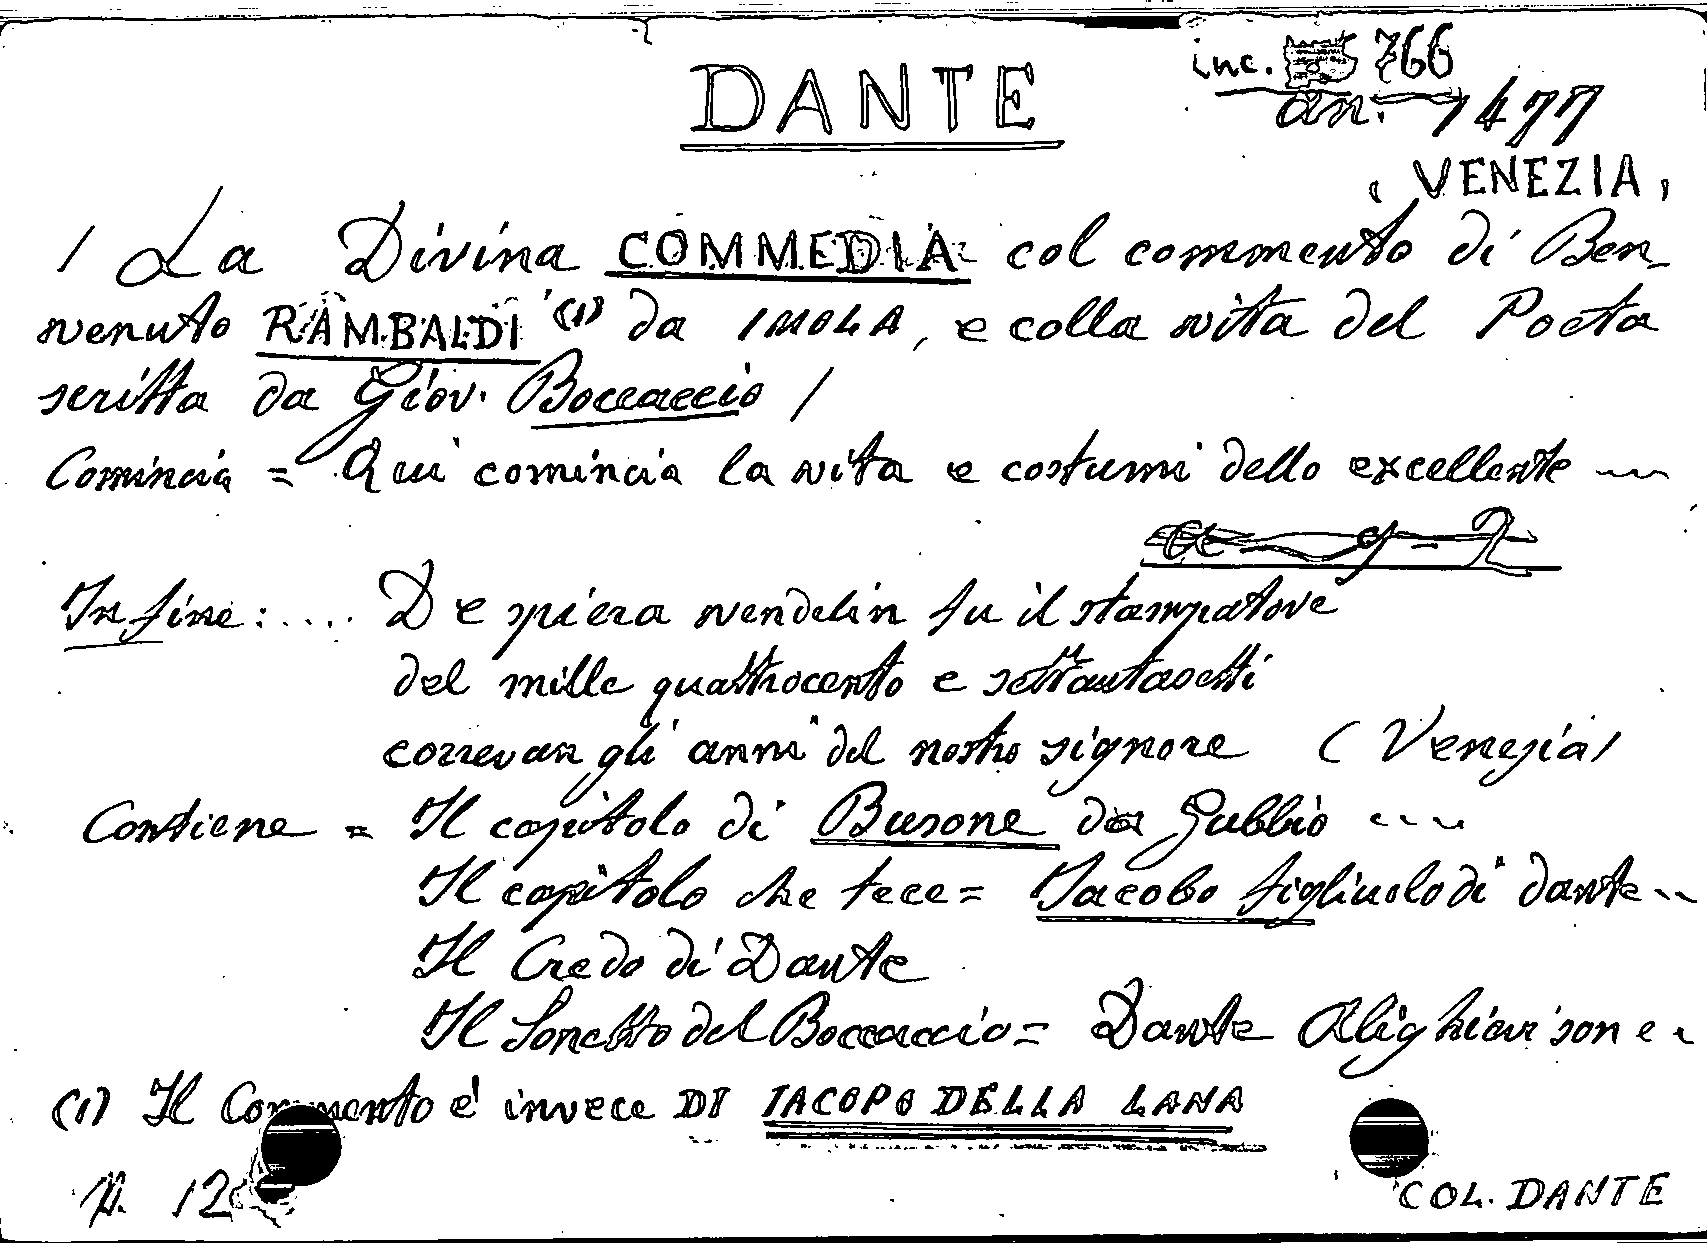 DANTE
inc. 766
an. 1477
(VENEZIA)
/ La Divina COMMEDIA col commento di Ben-
venuto RAMBALDI (1) da IMOLA, e colla vita del Poeta
scritta da Giov. Boccaccio /
Comincia = Qui comincia la vita e costumi dello excellente ---
In fine: .... De spiera vendelin fu il stampatore
del mille quattrocento e settantasetti
correvan gli anni del nostro signore (Venezia)
Contiene = Il capitolo di Busone da Gubbio ----
Il capitolo che fece = Jacobo figliuolo di dante --
Il Credo di Dante
Il Sonetto del Boccaccio = Dante Alighieri son e -
(1) Il Commento è invece DI IACOPO DELLA LANA
N. 12
COL. DANTE